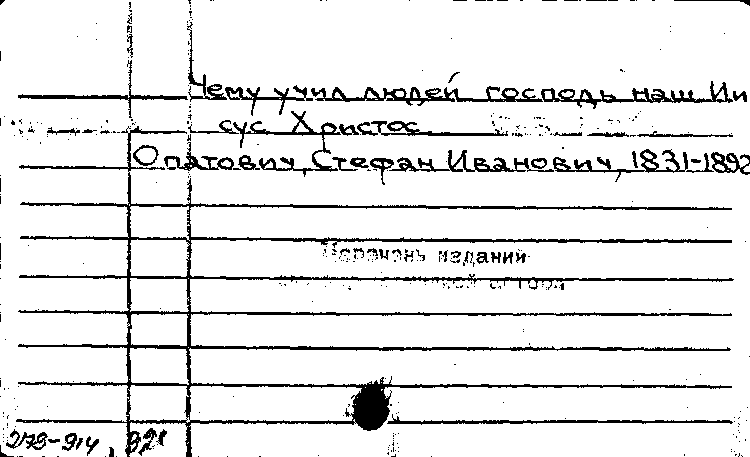 Чему учил людей господь наш Ии
сус Христос
Опатович, Стефан Иванович, 1831-1892
Перечень изданий